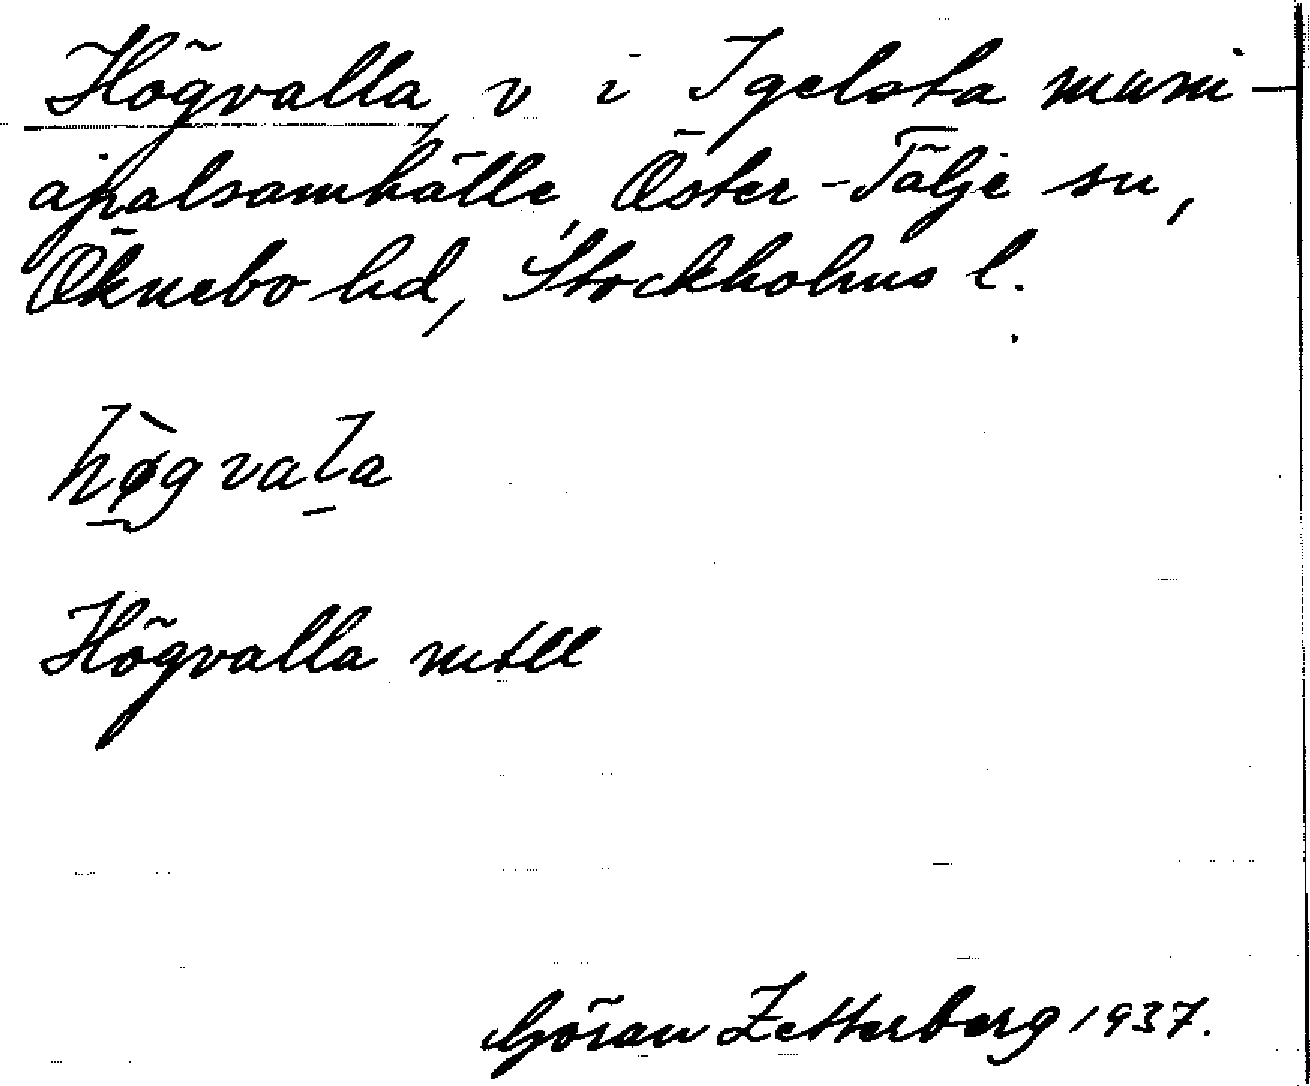 Högvalla, v i Igelsta muni-
cipalsamhälle, Öster-Tälje sn,
Öknebo hd, Stockholms l.
hø̀gvala
Högvalla mtll
Göran Zetterberg 1937.